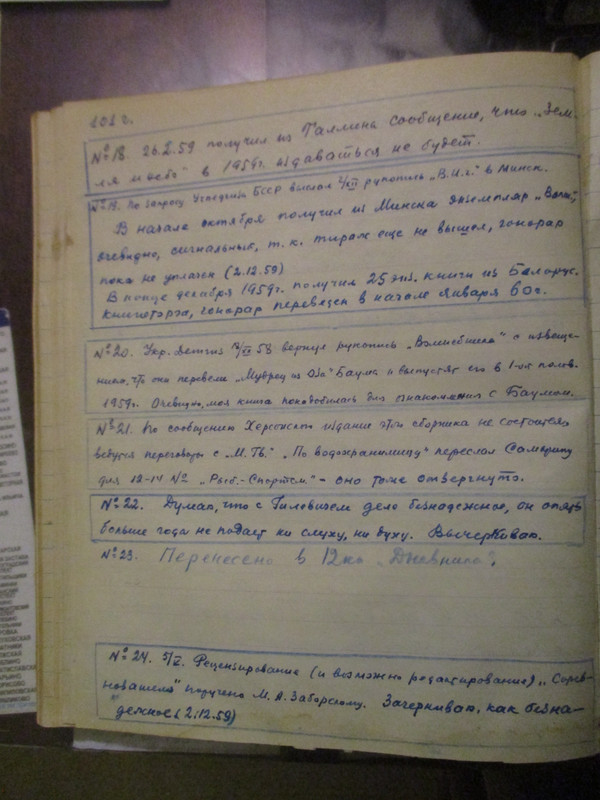 101 г.
№ 18. 26.X.59 получил из Таллина сообщение, что „Зем-
ля и небо" в 1959г. издаваться не будет.
№ 19. По запросу Учпедгиза БССР выслал рукопись „В.И.г." в Минск.
В начале октября получил из Минска экземпляр
очевидно, сигнальный, т. к. тираж еще не вышел, гонорар
пока не уплачен (2.12.59)
В конце декабря 1959г. получил 25 экз. книги из Белорус.
книготорга, гонорар переведен в начале января 60 г.
№ 20. Укр. Детгиз 58 вернул рукопись „Волшебника" с извеще-
нием, что они перевели „Мудрец из Оза" Баума и выпустят его в 1-ой полов.
1959г. Очевидно, моя книга понадобилась для ознакомления с Баумом.
№ 21. По сообщению Херсонского издание этого сборника не состоится,
ведутся переговоры с „М. Гв." „По водохранилищу" переслал
для 12-14 № „Рыб.-Спортсм." - оно тоже отвергнуто.
№ 22. Думаю, что с Гилевичем дело безнадежное, он опять
больше года не подает ни слуху, ни духу. Вычеркиваю.
№ 23. Перенесено в 12кн „Дневника".
№ 24. 5/V. Рецензирование (и возможно редактирование) „Сорев-
нователя" поручено М. А. Заборскому. Зачеркиваю, как безна-
дежное (2.12.59)